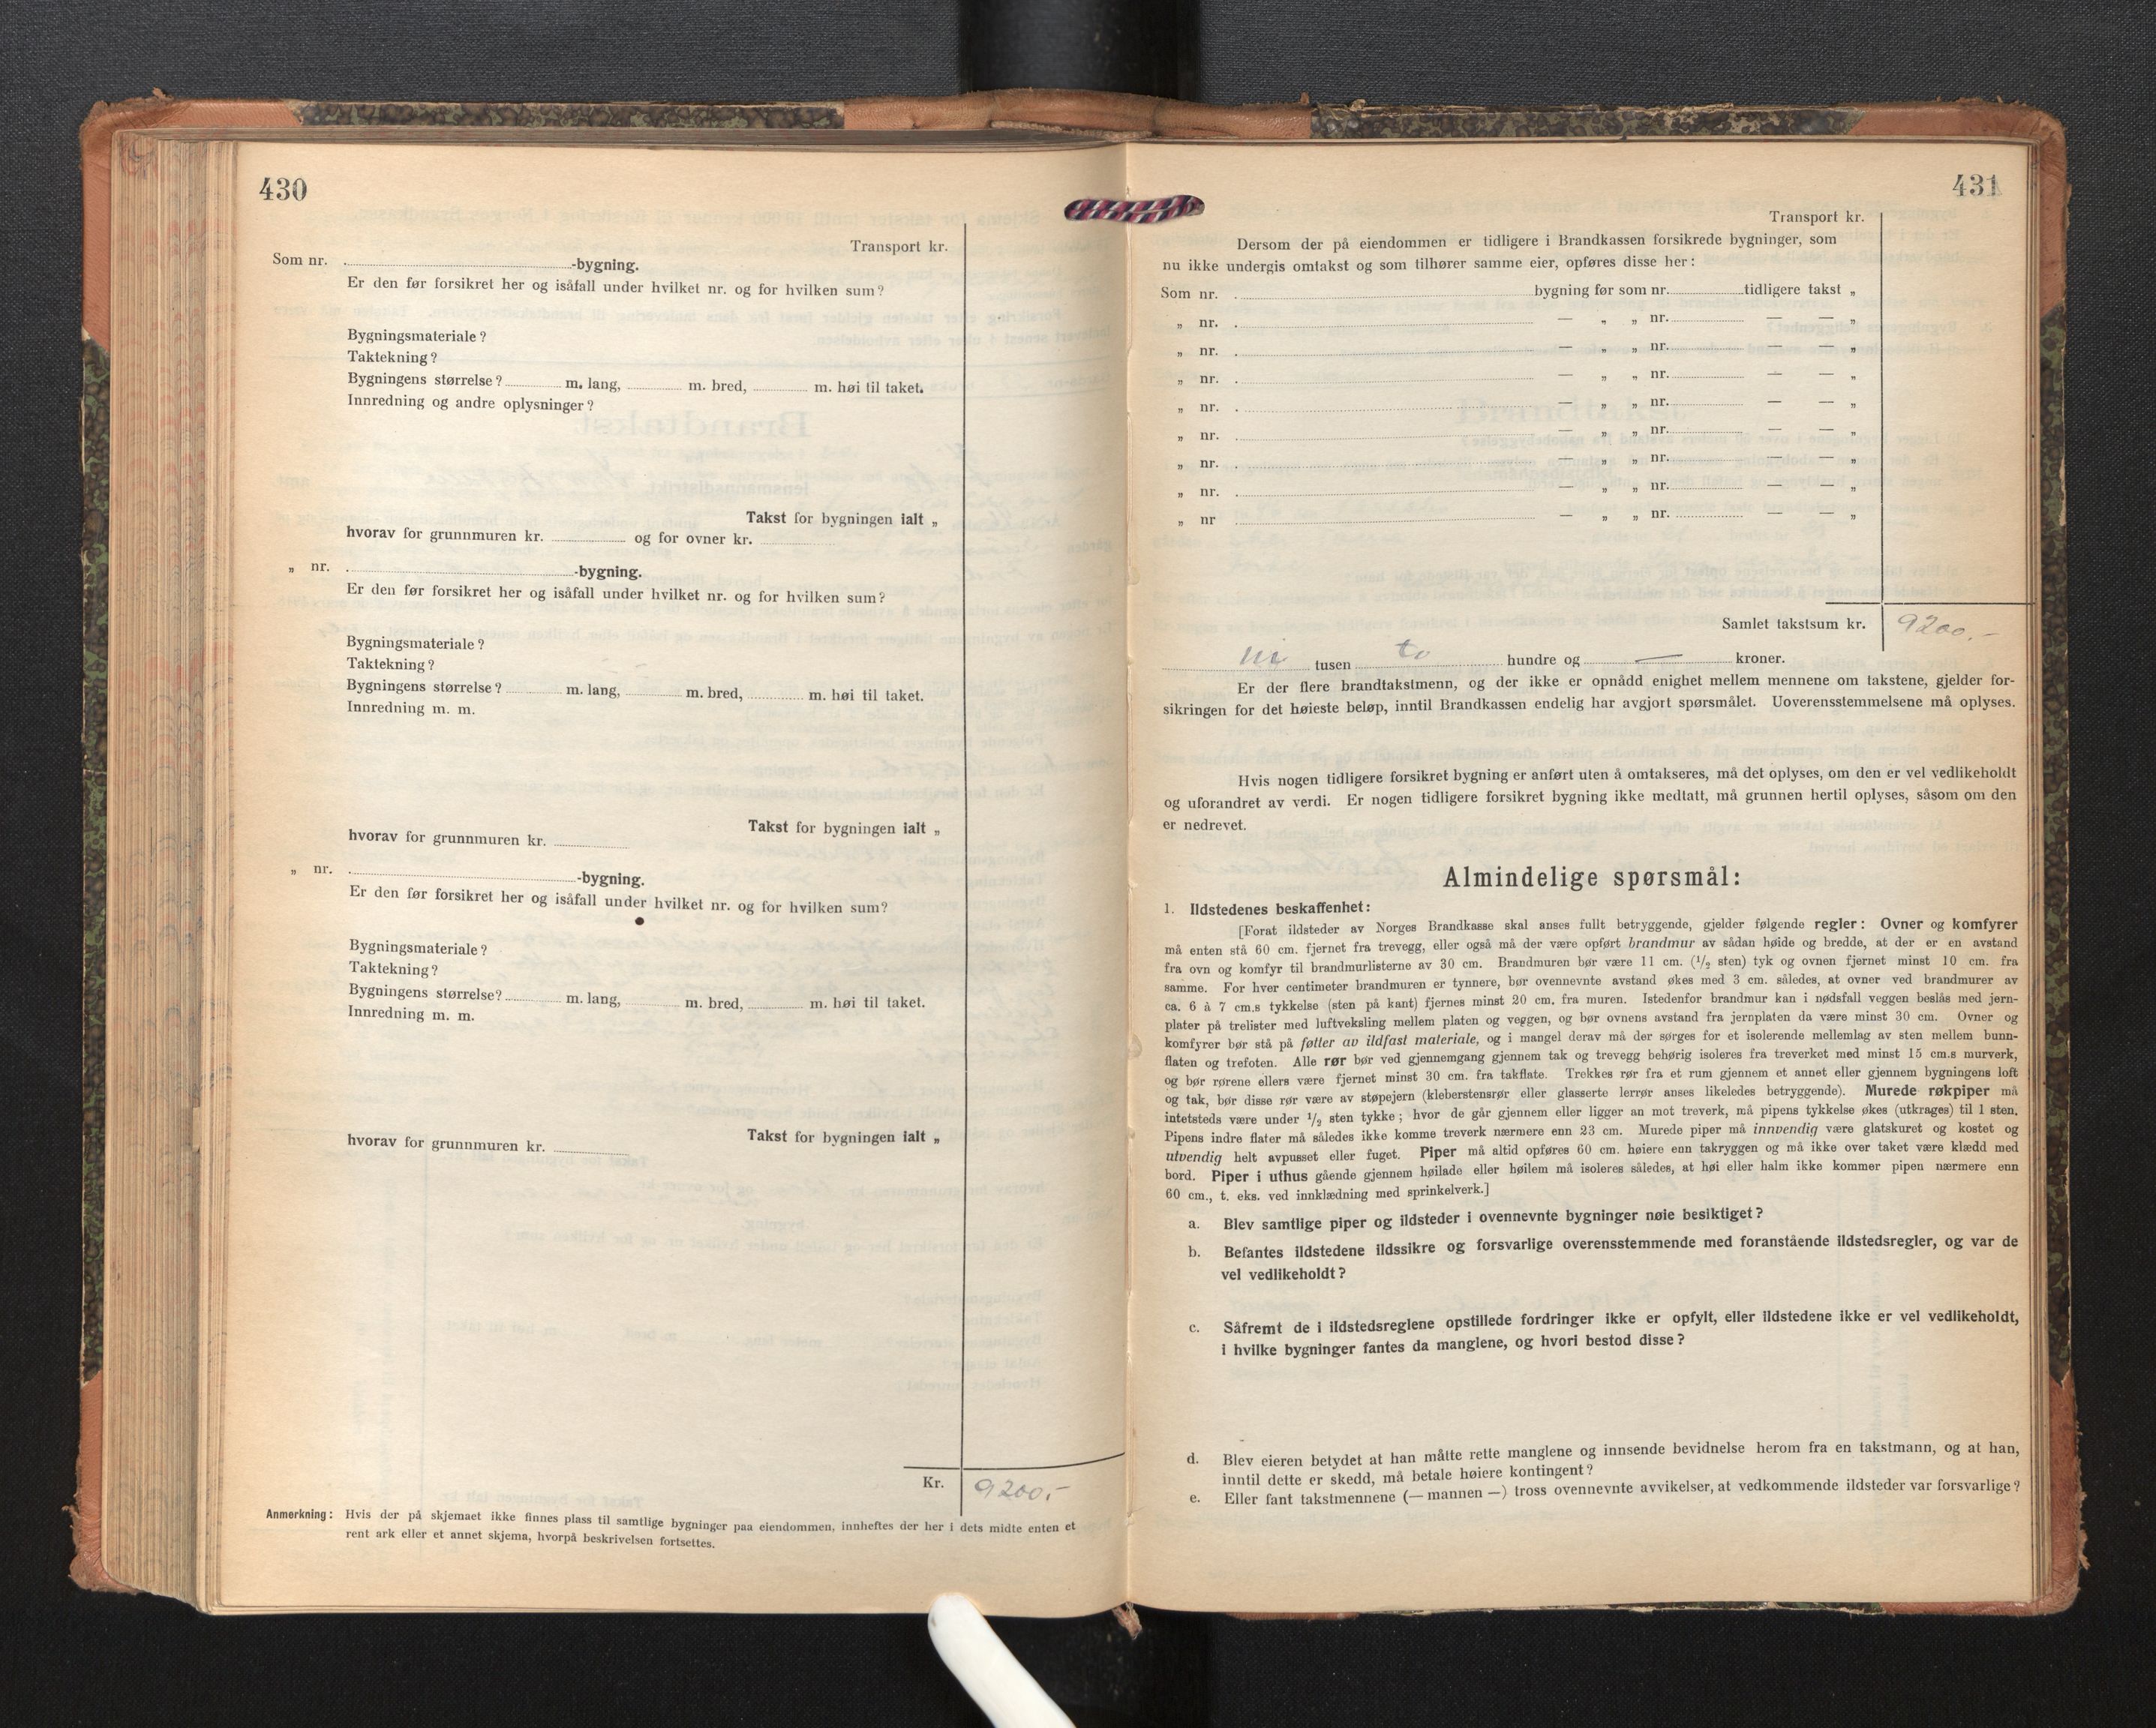 430
Transport kr.
Som nr. -bygning.
Er den før forsikret her og isåfall under hvilket nr. og for hvilken sum?
Bygningsmateriale?
Taktekning?
Bygningens størrelse? m. lang, m. bred, m. høi til taket.
Innredning og andre oplysninger?
Takst for bygningen ialt „
hvorav for grunnmuren kr. og for ovner kr.
„ nr. -bygning.
Er den før forsikret her og isåfall under hvilket nr. og for hvilken sum?
Bygningsmateriale?
Taktekning?
Bygningens størrelse? m. lang, m. bred, m. høi til taket.
Innredning m. m.
Takst for bygningen ialt „
hvorav for grunnmuren kr.
„ nr. -bygning.
Er den før forsikret her og isåfall under hvilket nr. og for hvilken sum?
Bygningsmateriale?
Taktekning?
Bygningens størrelse? m. lang, m. bred, m. høi til taket.
Innredning m. m.
Takst for bygningen ialt „
hvorav for grunnmuren kr.
Kr. 9200,-
Anmerkning: Hvis der på skjemaet ikke finnes plass til samtlige bygninger paa eiendommen, innheftes der her i dets midte enten et
rent ark eller et annet skjema, hvorpå beskrivelsen fortsettes.
431
Transport kr.
Dersom der på eiendommen er tidligere i Brandkassen forsikrede bygninger, som
nu ikke undergis omtakst og som tilhører samme eier, opføres disse her:
Som nr. bygning før som nr. tidligere takst „
„ nr. — „ „ nr. — — „
„ nr. — „ „ nr. — — „
„ nr. — „ „ nr. — — „
„ nr. — „ „ nr. — — „
„ nr. — „ „ nr. — — „
„ nr. — „ „ nr. — — „
„ nr. — „ „ nr. — — „
„ nr — „ „ nr. — — „
Samlet takstsum kr. 9200,-
ni tusen to hundre og — kroner.
Er der flere brandtakstmenn, og der ikke er opnådd enighet mellem mennene om takstene, gjelder for-
sikringen for det høieste beløp, inntil Brandkassen endelig har avgjort spørsmålet. Uoverensstemmelsene må oplyses.
Hvis nogen tidligere forsikret bygning er anført uten å omtakseres, må det oplyses, om den er vel vedlikeholdt
og uforandret av verdi. Er nogen tidligere forsikret bygning ikke medtatt, må grunnen hertil oplyses, såsom om den
er nedrevet.
Almindelige spørsmål:
1. Ildstedenes beskaffenhet:
[Forat ildsteder av Norges Brandkasse skal anses fullt betryggende, gjelder følgende regler: Ovner og komfyrer
må enten stå 60 cm. fjernet fra trevegg, eller også må der være opført brandmur av sådan høide og bredde, at der er en avstand
fra ovn og komfyr til brandmurlisterne av 30 cm. Brandmuren bør være 11 cm. (1/2 sten) tyk og ovnen fjernet minst 10 cm. fra
samme. For hver centimeter brandmuren er tynnere, bør ovennevnte avstand økes med 3 cm. således, at ovner ved brandmurer av
ca. 6 à 7 cm.s tykkelse (sten på kant) fjernes minst 20 cm. fra muren. Istedenfor brandmur kan i nødsfall veggen beslås med jern-
plater på trelister med luftveksling mellem platen og veggen, og bør ovnens avstand fra jernplaten da være minst 30 cm. Ovner og
komfyrer bør stå på føtter av ildfast materiale, og i mangel derav må der sørges for et isolerende mellemlag av sten mellem bunn-
flaten og trefoten. Alle rør bør ved gjennemgang gjennem tak og trevegg behørig isoleres fra treverket med minst 15 cm.s murverk,
og bør rørene ellers være fjernet minst 30 cm. fra takflate. Trekkes rør fra et rum gjennem et annet eller gjennem bygningens loft
og tak, bør disse rør være av støpejern (kleberstensrør eller glasserte lerrør anses likeledes betryggende). Murede røkpiper må
intetsteds være under 1/2 sten tykke; hvor de går gjennem eller ligger an mot treverk, må pipens tykkelse økes (utkrages) til 1 sten.
Pipens indre flater må således ikke komme treverk nærmere enn 23 cm. Murede piper må innvendig være glatskuret og kostet og
utvendig helt avpusset eller fuget. Piper må altid opføres 60 cm. høiere enn takryggen og må ikke over taket være klædd med
bord. Piper i uthus gående gjennem høilade eller høilem må isoleres således, at høi eller halm ikke kommer pipen nærmere enn
60 cm., t. eks. ved innklædning med sprinkelverk.]
a. Blev samtlige piper og ildsteder i ovennevnte bygninger nøie besiktiget?
b. Befantes ildstedene ildssikre og forsvarlige overensstemmende med foranstående ildstedsregler, og var de
vel vedlikeholdt?
c. Såfremt de i ildstedsreglene opstillede fordringer ikke er opfylt, eller ildstedene ikke er vel vedlikeholdt,
i hvilke bygninger fantes da manglene, og hvori bestod disse?
d. Blev eieren betydet at han måtte rette manglene og innsende bevidnelse herom fra en takstmann, og at han,
inntil dette er skedd, må betale høiere kontingent?
e. Eller fant takstmennene (— mannen —) tross ovennevnte avvikelser, at vedkommende ildsteder var forsvarlige?